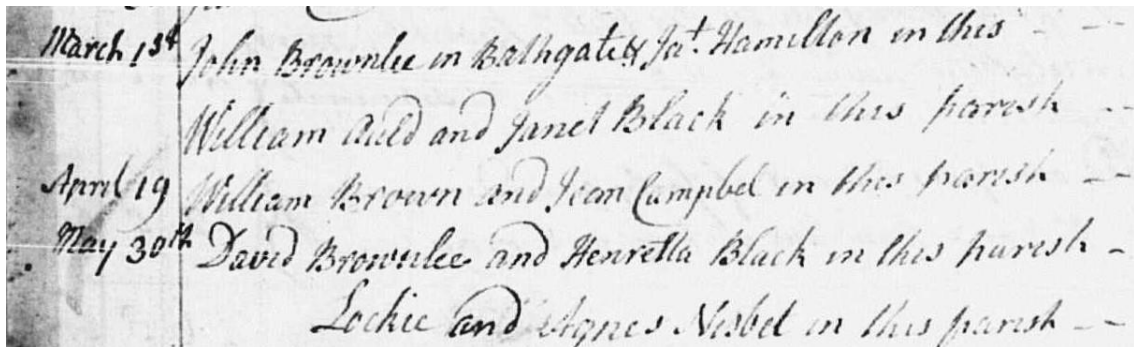 March 1st John Brownlee in Bathgate & Jat. Hamilton in this - -
William Auld and Janet Black in this parish - -
April 19 William Brown and Jean Campbel in this parish - -
May 30th David Brownlee and Henretta Black in this parish -
Lockie and Agnes Nisbet in this parish - -